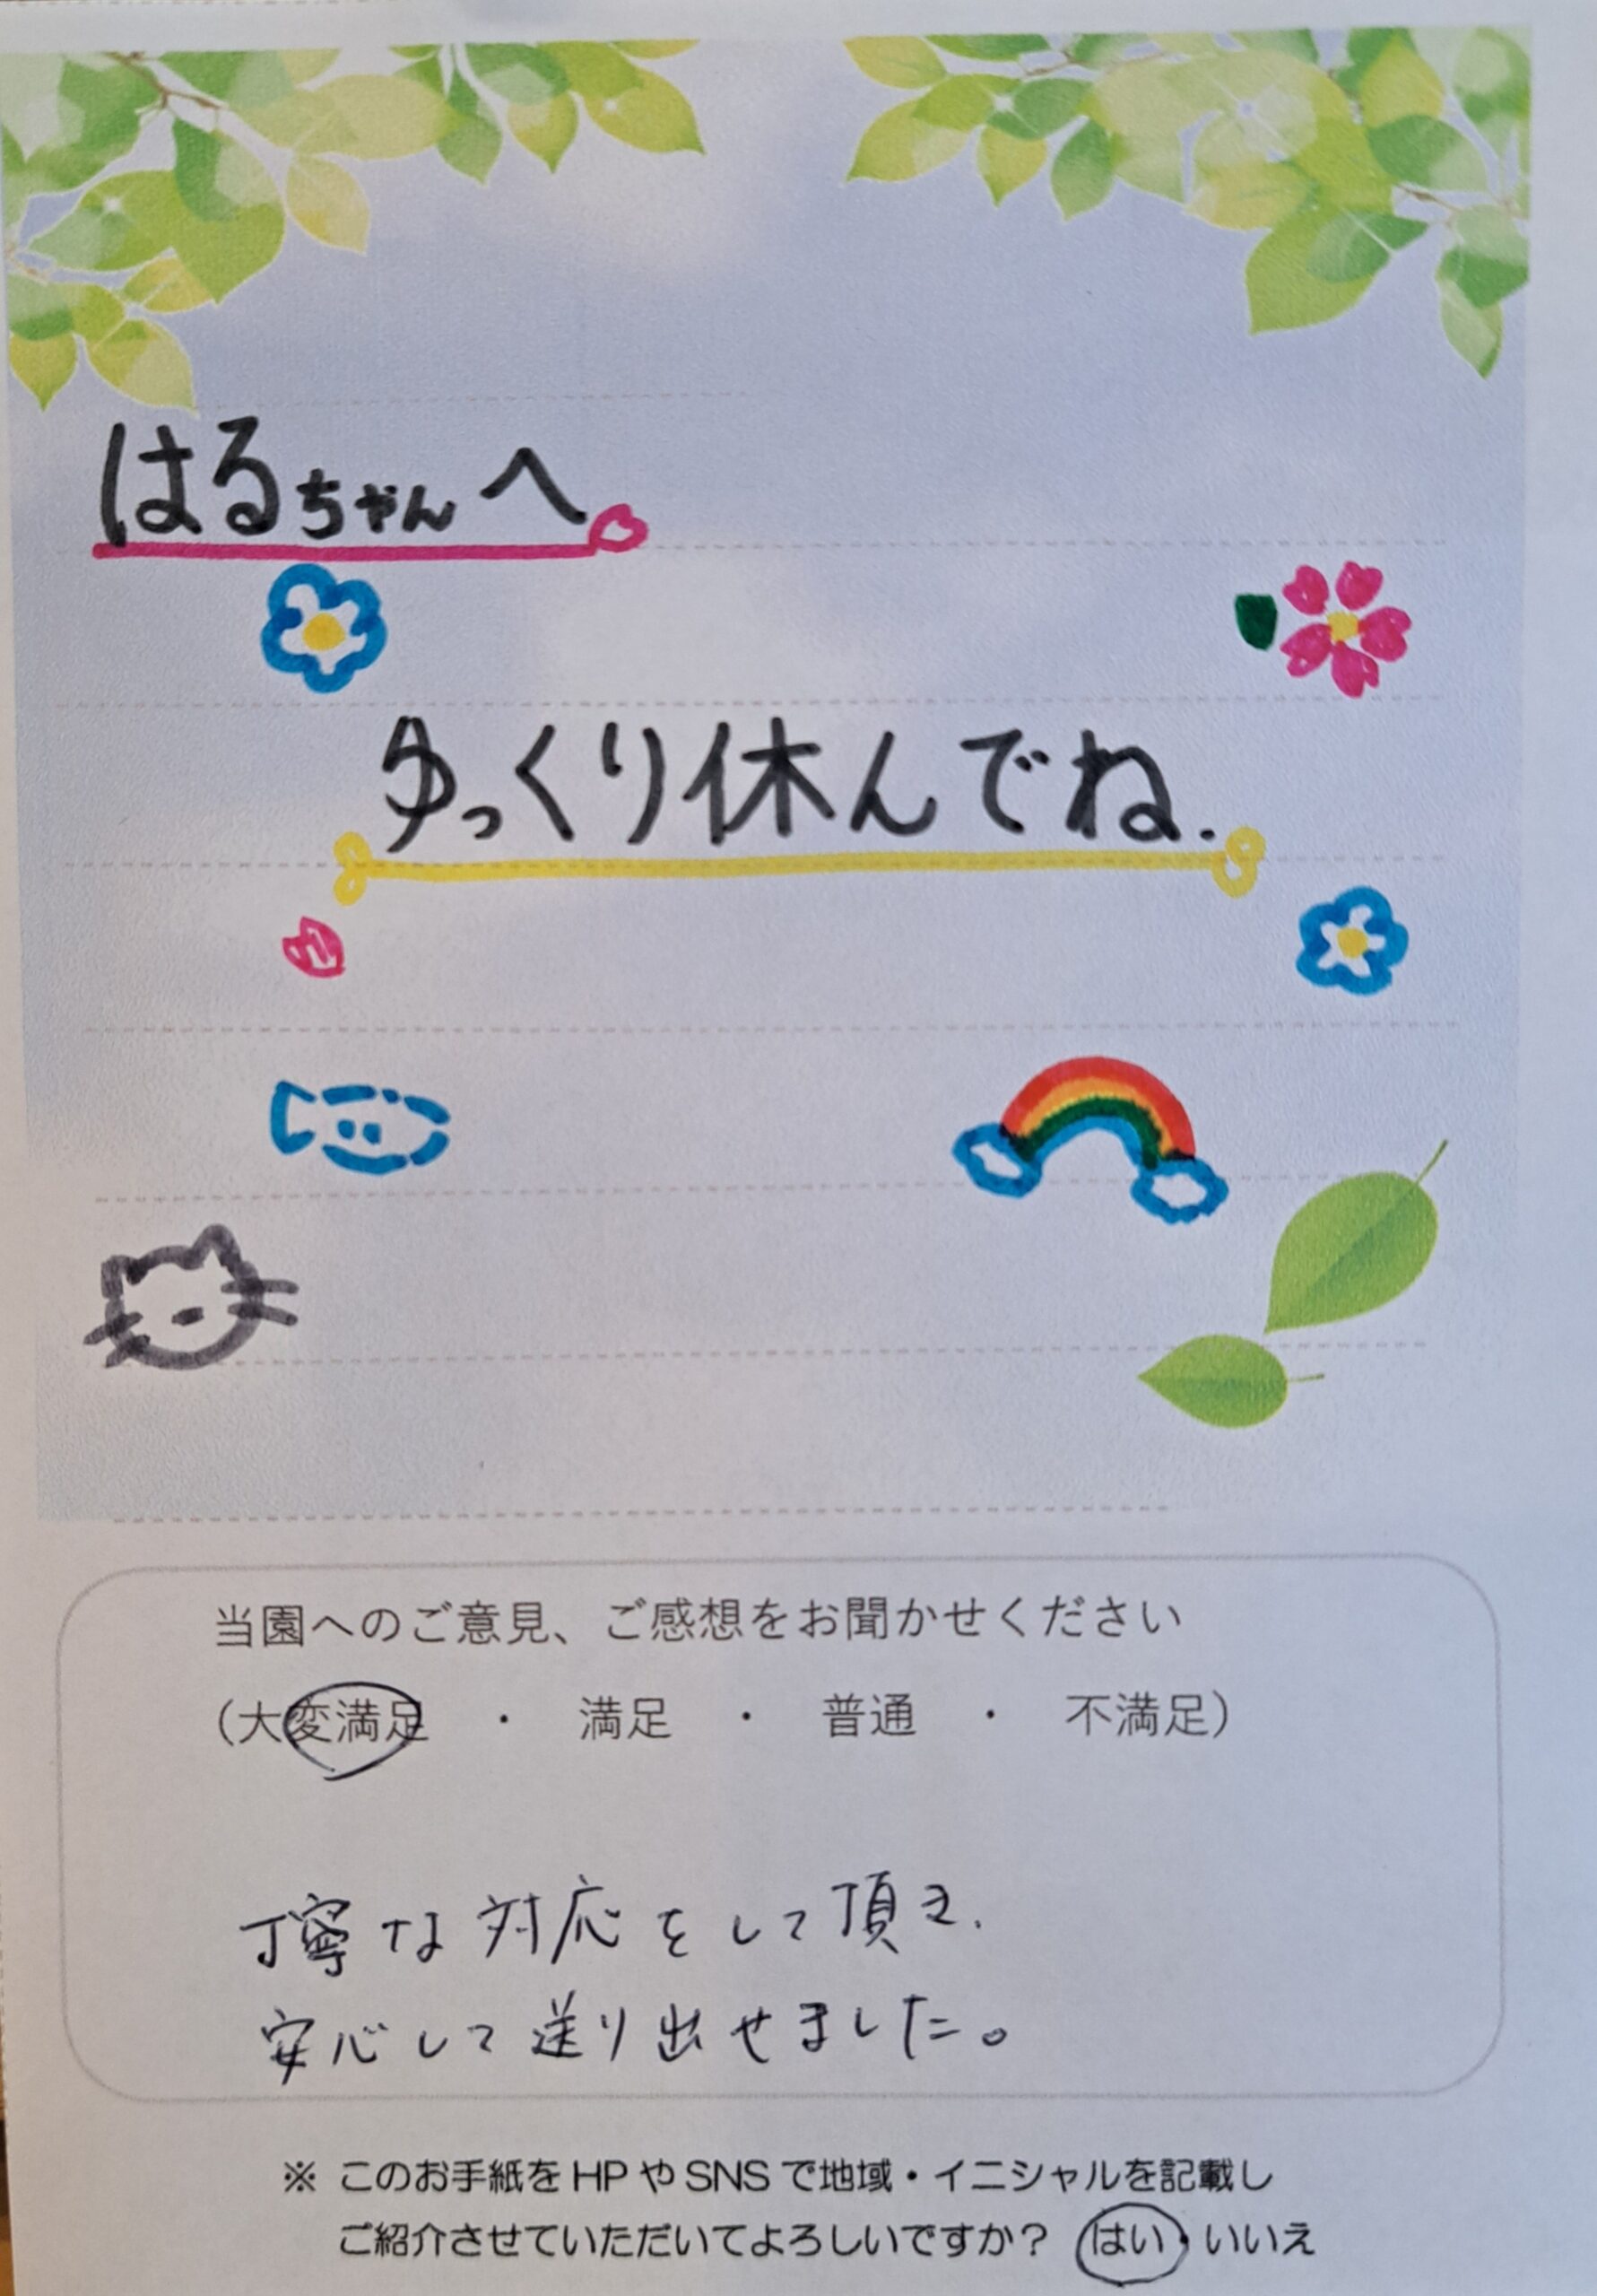 はるちゃんへ
ゆっくり休んでね.
当園へのご意見、ご感想をお聞かせください
（大変満足　・　満足　・　普通　・　不満足）
丁寧な対応をして頂き、
安心して送り出せました。
※ このお手紙をHPやSNSで地域・イニシャルを記載し
ご紹介させていただいてよろしいですか？ はい・いいえ